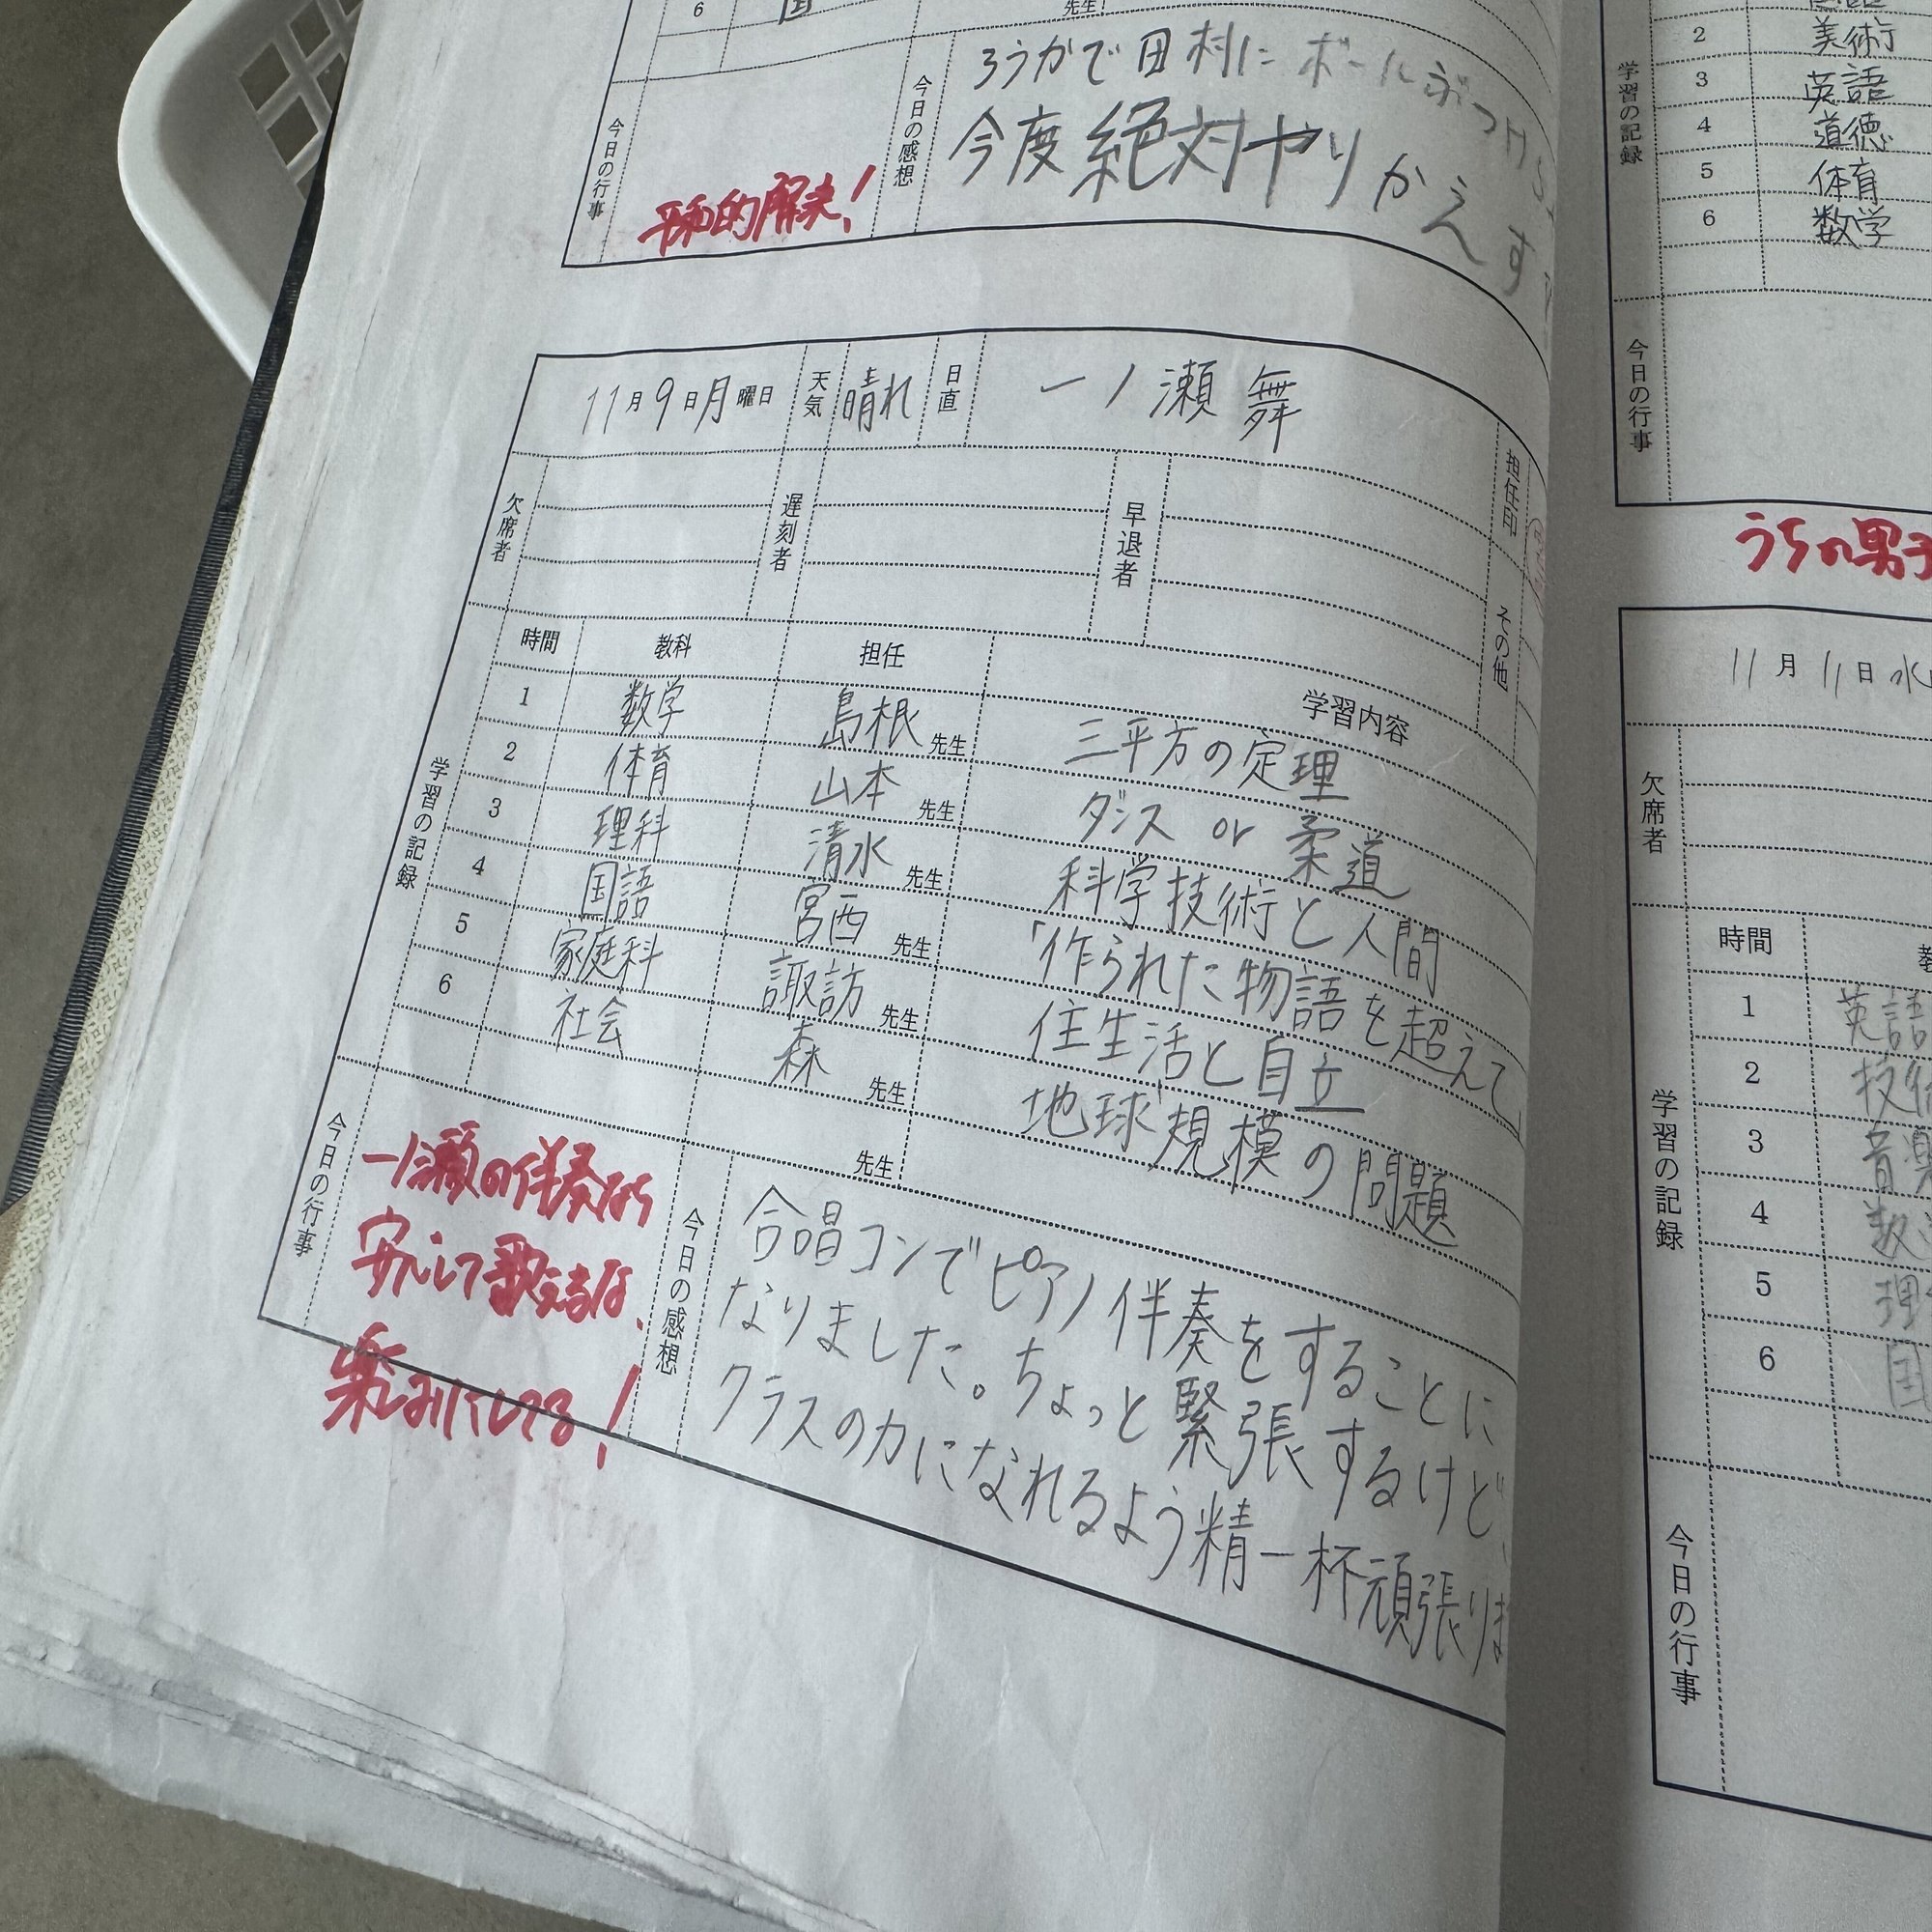 6 国 先生
今日の行事
平和的解決!
今日の感想
ろうかで田村にボールぶつけ
今度絶対やりかえす
11月9日月曜日 天気 晴れ 日直 一ノ瀬 舞
担任印
欠席者 遅刻者 早退者 その他
学習の記録
時間 教科 担任 学習内容
1 数学 島根先生 三平方の定理
2 体育 山本先生 ダンス or 柔道
3 理科 清水先生 科学技術と人間
4 国語 宮西先生 「作られた物語を超えて」
5 家庭科 諏訪先生 住生活と自立
6 社会 森先生 地球規模の問題
先生
今日の行事
一ノ瀬の伴奏なら
安心して歌えるな、
楽しみにしてる!
今日の感想
合唱コンでピアノ伴奏をすることに
なりました。ちょっと緊張するけど、
クラスの力になれるよう精一杯頑張りま
学習の記録
2 美術
3 英語
4 道徳
5 体育
6 数学
今日の行事
うちの男子
11月11日水
欠席者
学習の記録
時間
1 英語
2
3 音楽
4
5
6
今日の行事